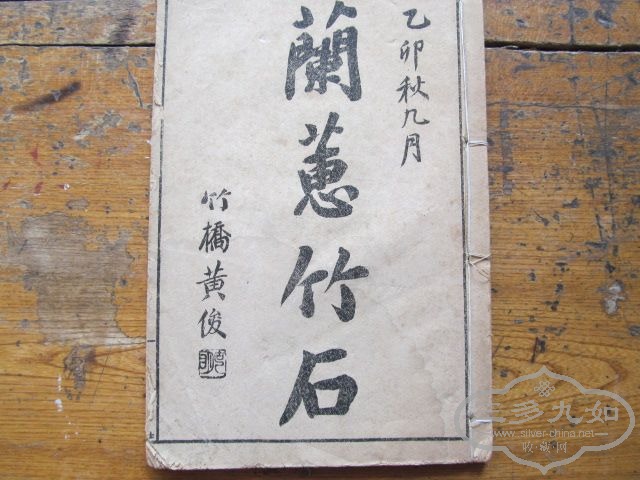 乙卯秋九月
蘭蕙竹石
竹橋黃俊
多九如
www.silver-china.net
收·藏·网